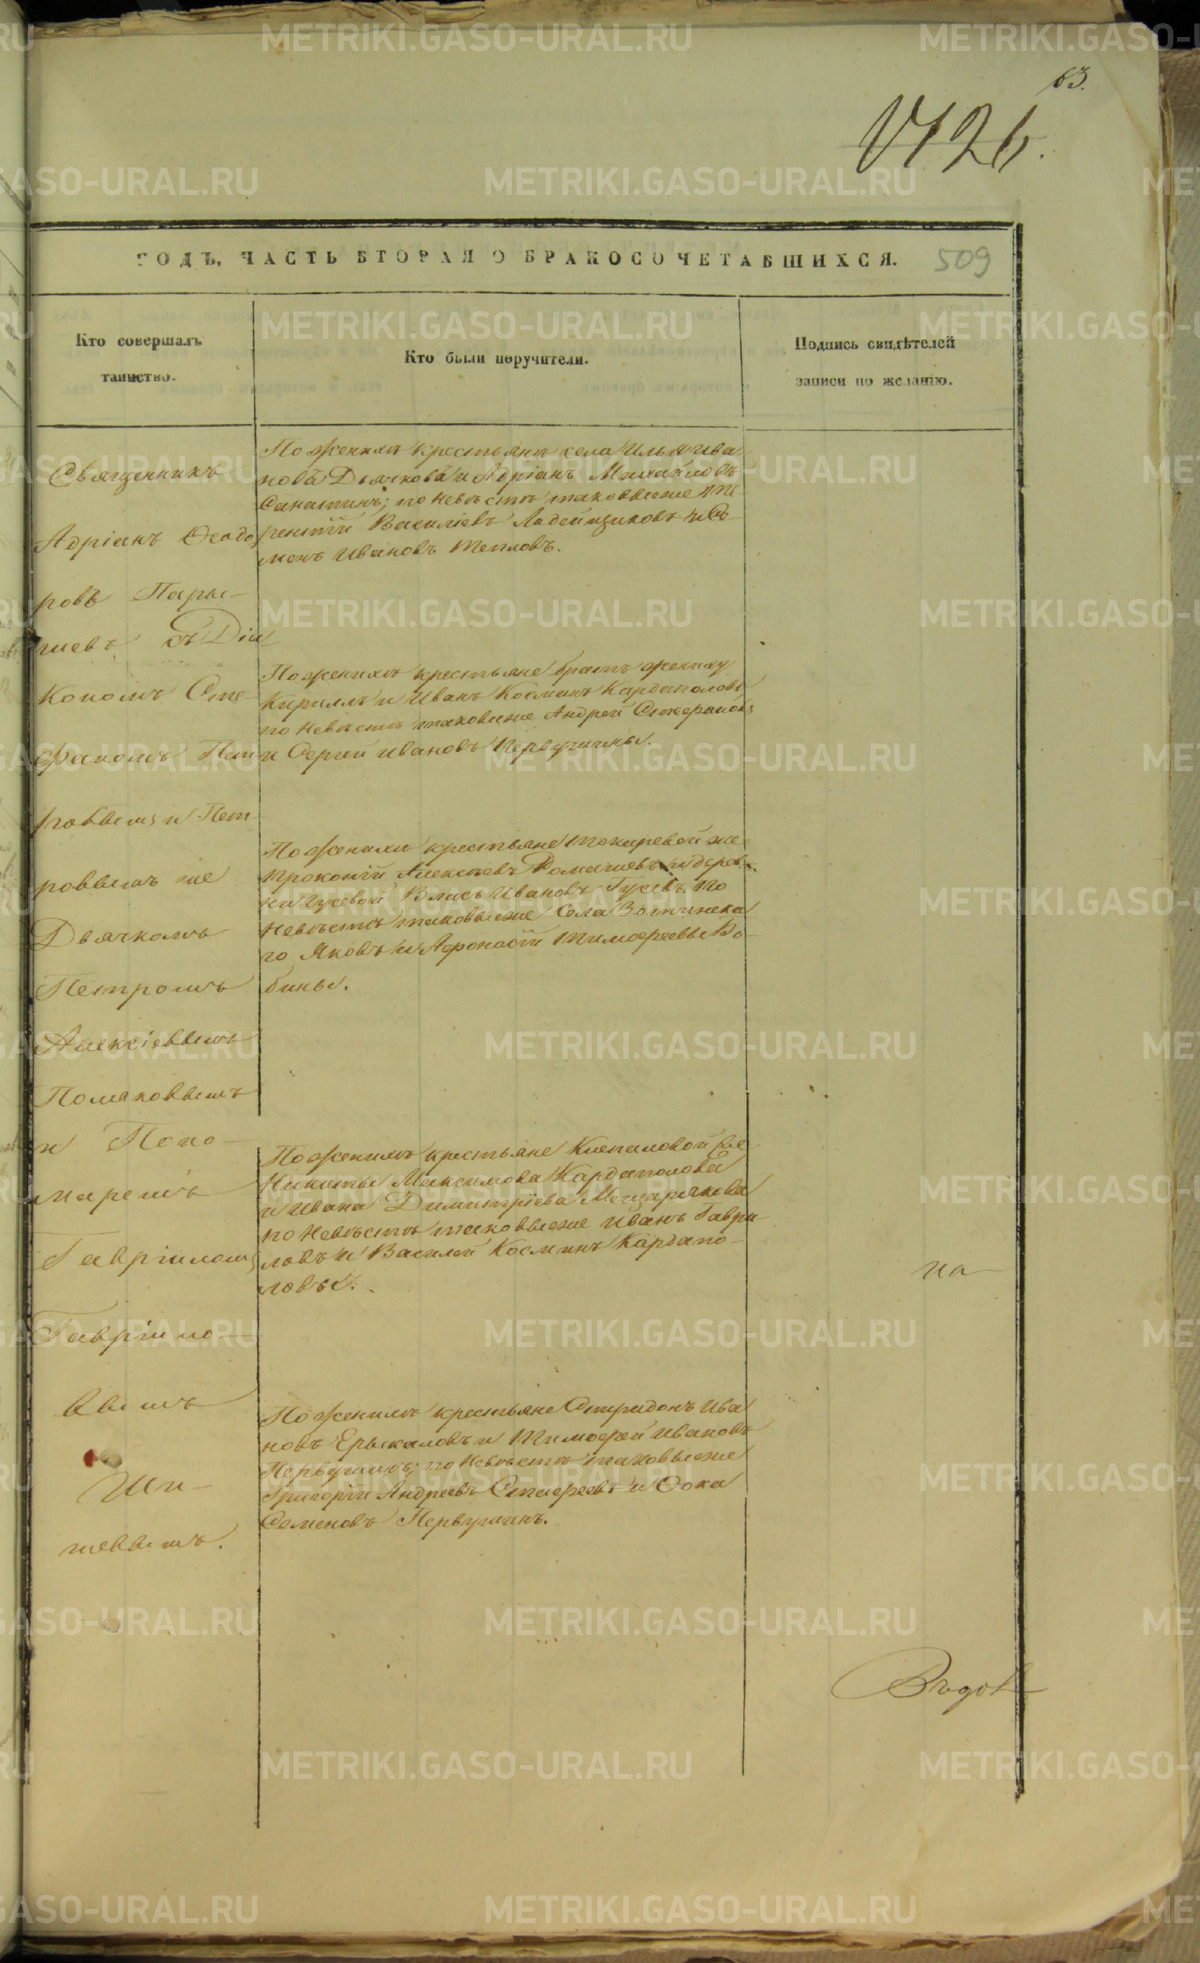 63.
V126.
ГОДЪ, ЧАСТЬ ВТОРАЯ О БРАКОСОЧЕТАВШИХСЯ.
509
Кто совершалъ
таинство.
Кто были поручители.
Подпись свидѣтелей
записи по желанію.
Священникъ
Адріанъ Ѳеодо
ровъ Пары-
шевъ съ Діа
кономъ Сте-
фаномъ Пет
ровымъ и Пет
ровымъ же
Дьячкомъ
Петромъ
Алексіевымъ
Помаковымъ
и Поно-
маремъ
Гавріиломъ
Гавріило-
вымъ
Ши-
шевымъ.
По женихѣ крестьяне села Илья Ива
новъ Дьячковъ и Адріанъ Михайловъ
по невѣстѣ таковые же Те
рентій Василіевъ Ладейщиковъ и Се-
менъ Ивановъ Тепловъ.
По женихѣ крестьяне братъ жениху
Кириллъ и Иванъ Космины Кардаполовы
по невѣстѣ таковые же Андрей
и Сергей Ивановъ Первушины.
По женихѣ крестьяне Токаревой же
Прокопій Алексѣевъ Ромачевъ и дерев-
ни Гусевой Иванов Гусевъ, по
невѣстѣ таковые же села
го Яковъ и Афонасій Тимофеевы Бо
бины.
По женихѣ крестьяне Клепаловой же
Никиты Максимова Кардаполова
и Ивана Димитріева Мещерякова
по невѣстѣ таковые же Иванъ Гаври-
ловъ и Василей Косминъ Кардапо-
ловы.
По женихѣ крестьяне Спиридонъ Ива
новъ Ерыкаловъ и Тимофей Ивановъ
Первушинъ; по невѣстѣ таковые же
Григорій Андреевъ и Фока
Семеновъ Первушинъ.
на
METRIKI.GASO-URAL.RU